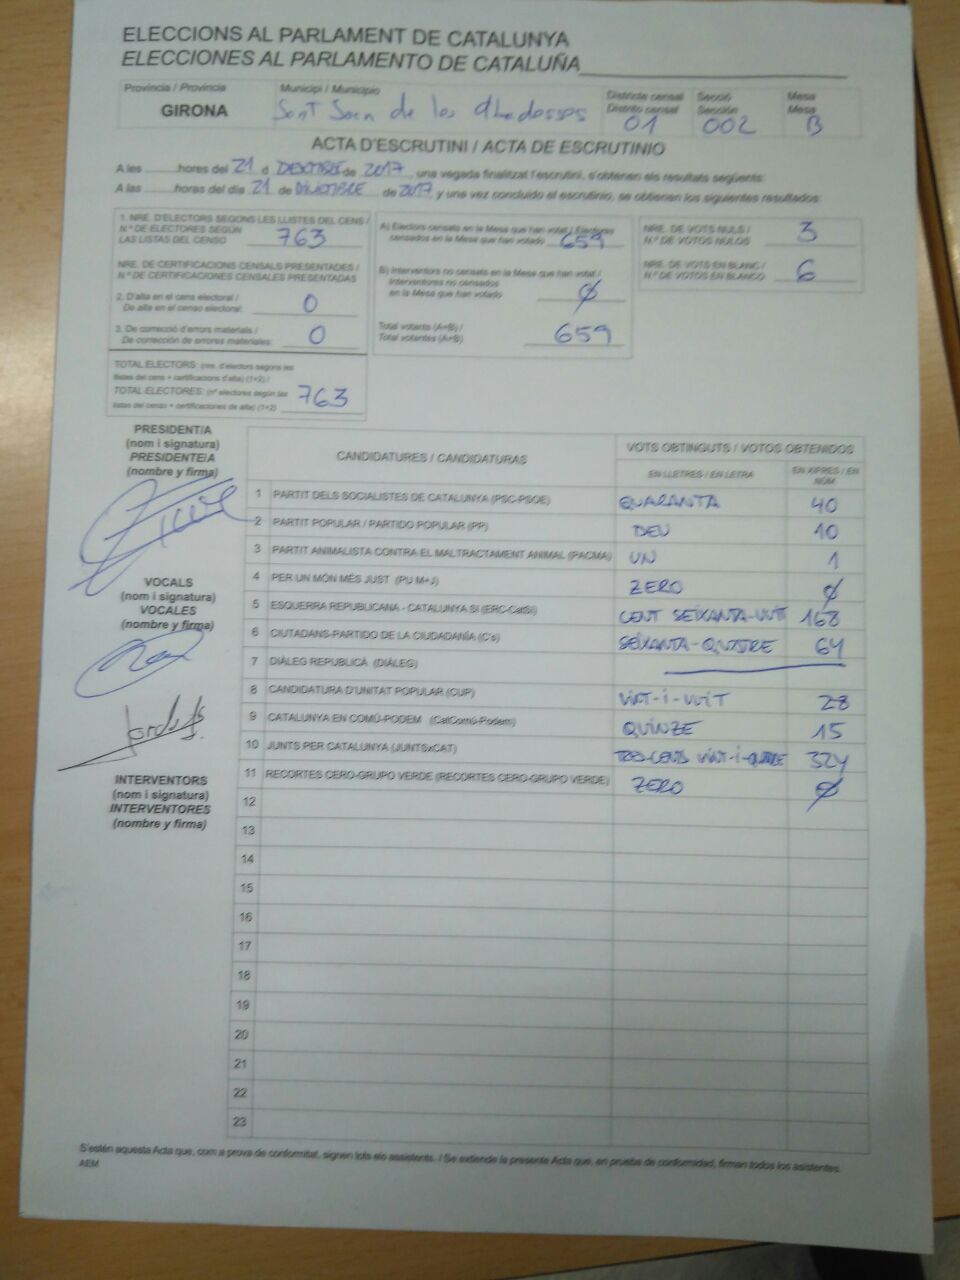 ELECCIONS AL PARLAMENT DE CATALUNYA
ELECCIONES AL PARLAMENTO DE CATALUÑA
Província / Provincia
GIRONA
Municipi / Municipio
Sant Joan de les Abadesses
Districte censal
Distrito censal
01
Secció
Sección
002
Mesa
Mesa
B
ACTA D'ESCRUTINI / ACTA DE ESCRUTINIO
A les hores del 21 d de 2017, una vegada finalitzat l'escrutini, s'obtenen els resultats següents:
A las horas del día 21 de de 2017, y una vez concluido el escrutinio, se obtienen los siguientes resultados:
1. NRE. D'ELECTORS SEGONS LES LLISTES DEL CENS /
N.º DE ELECTORES SEGÚN
LAS LISTAS DEL CENSO 763
NRE. DE CERTIFICACIONS CENSALS PRESENTADES /
N.º DE CERTIFICACIONES CENSALES PRESENTADAS
2. D'alta en el cens electoral /
De alta en el censo electoral: 0
3. De correcció d'errors materials /
De corrección de errores materiales: 0
TOTAL ELECTORS: (nre. d'electors segons les
llistes del cens + certificacions d'alta) (1+2) /
TOTAL ELECTORES: (nº electores según las
listas del censo + certificaciones de alta) (1+2) 763
A) Electors censats en la Mesa que han votat / Electores
censados en la Mesa que han votado 659
B) Interventors no censats en la Mesa que han votat /
Interventores no censados
en la Mesa que han votado 0
Total votants (A+B) /
Total votantes (A+B) 659
NRE. DE VOTS NULS /
N.º DE VOTOS NULOS 3
NRE. DE VOTS EN BLANC /
N.º DE VOTOS EN BLANCO 6
PRESIDENT/A
(nom i signatura)
PRESIDENTE/A
(nombre y firma)
VOCALS
(nom i signatura)
VOCALES
(nombre y firma)
INTERVENTORS
(nom i signatura)
INTERVENTORES
(nombre y firma)
CANDIDATURES / CANDIDATURAS
VOTS OBTINGUTS / VOTOS OBTENIDOS
EN LLETRES / EN LETRA
EN XIFRES / EN NÚM
1 PARTIT DELS SOCIALISTES DE CATALUNYA (PSC-PSOE) QUARANTA 40
2 PARTIT POPULAR / PARTIDO POPULAR (PP) DEU 10
3 PARTIT ANIMALISTA CONTRA EL MALTRACTAMENT ANIMAL (PACMA) UN 1
4 PER UN MÓN MÉS JUST (PU M+J) ZERO 0
5 ESQUERRA REPUBLICANA - CATALUNYA SÍ (ERC-CatSí) CENT SEIXANTA-VUIT 168
6 CIUTADANS-PARTIDO DE LA CIUDADANÍA (C's) SEIXANTA-QUATRE 64
7 DIÀLEG REPUBLICÀ (DIÀLEG)
8 CANDIDATURA D'UNITAT POPULAR (CUP) VINT-I-VUIT 28
9 CATALUNYA EN COMÚ-PODEM (CatComú-Podem) QUINZE 15
10 JUNTS PER CATALUNYA (JUNTSxCAT) TRES-CENTS VINT-I-QUATRE 324
11 RECORTES CERO-GRUPO VERDE (RECORTES CERO-GRUPO VERDE) ZERO 0
12
13
14
15
16
17
18
19
20
21
22
23
S'estén aquesta Acta que, com a prova de conformitat, signen tots els assistents. / Se extiende la presente Acta que, en prueba de conformidad, firman todos los asistentes.
AEM